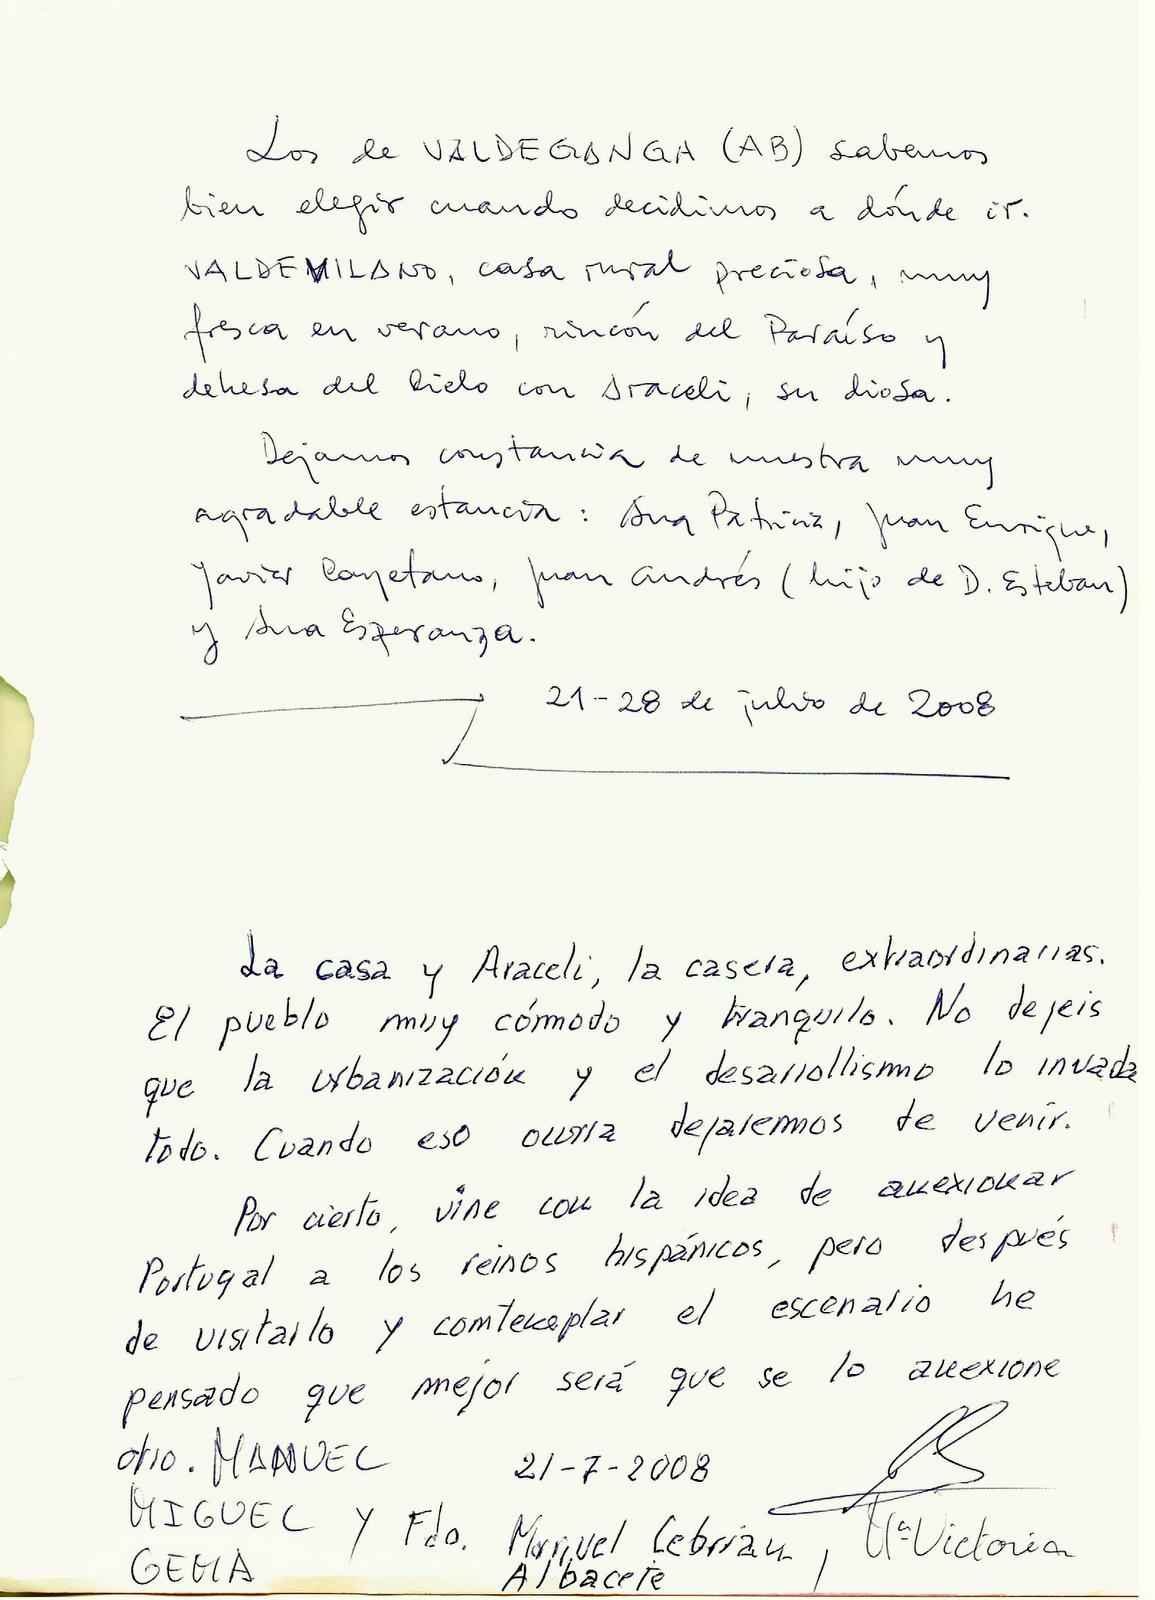 Los de VALDEGANGA (AB) sabemos
bien elegir cuando decidimos a dónde ir.
VALDEMILANO, casa rural preciosa, muy
fresca en verano, rincón del Paraíso y
dehesa del Cielo con Araceli, su diosa.
Dejamos constancia de nuestra muy
agradable estancia: Ana Patricia, Juan Enrique,
Javier Cayetano, Juan Andrés (hijo de D. Esteban)
y Ana Esperanza.
21-28 de julio de 2008
La casa y Araceli, la casera, extraordinarias.
El pueblo muy cómodo y tranquilo. No dejeis
que la urbanización y el desarrollismo lo invada
todo. Cuando eso ocurra dejaremos de venir.
Por cierto, vine con la idea de anexionar
Portugal a los reinos hispánicos, pero después
de visitarlo y comtemplar el escenario he
pensado que mejor será que se lo anexione
otro. MANUEL
21-7-2008
MIGUEL y Fdo. Manuel Cebrián, Mª Victoria
GEMA
Albacete